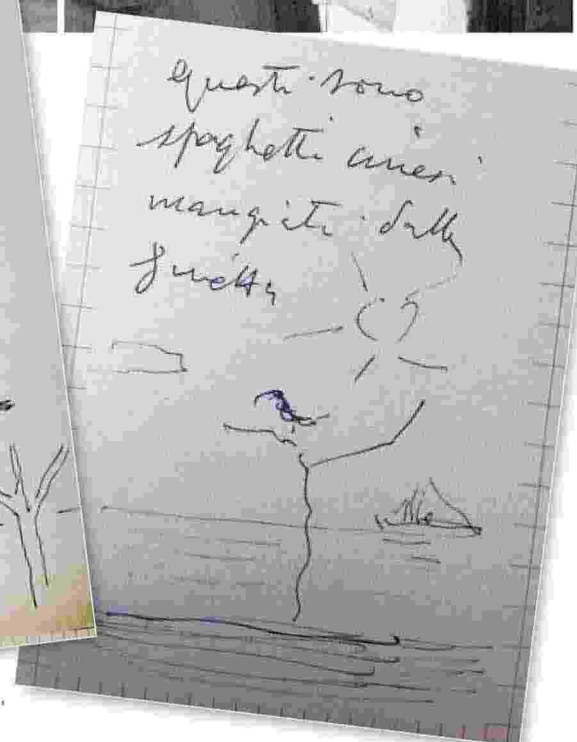 questi sono
spaghetti cinesi
mangiati dalla